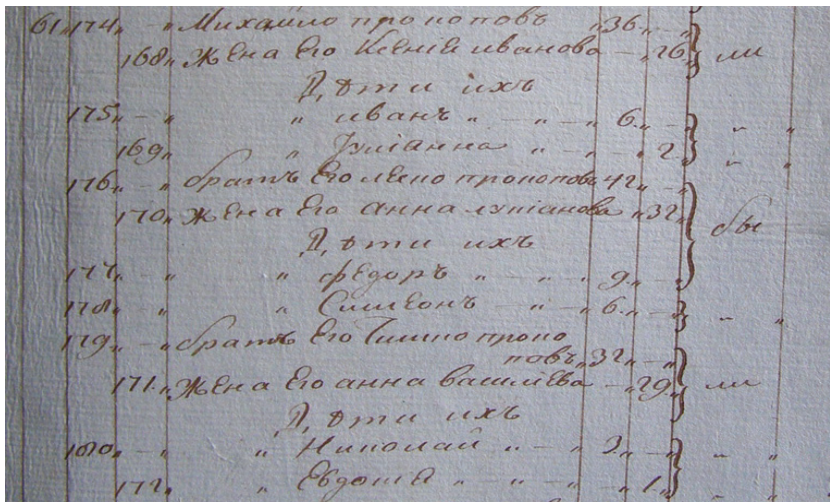 61 174 „ — „ Михайло прокоповъ „ 36 „ — „
168 „ Жена Его Ксенiя иванова — „ 26 „ ли
Дѣти ихъ
175 „ — „ „ иванъ „ — „ — „ 6 „ — „ — „ „
169 „ „ Iулiанна „ — „ — „ 2 „ — „ „
176 „ — „ братъ Его прокоповъ 42 „ — „
170 „ Жена Его анна лукiанова „ 32 „ бы
Дѣти ихъ
177 „ — „ „ федоръ „ — „ — „ 9 „ — „
178 „ — „ „ Симеонъ — „ — „ 6 „ — „ — „ „
179 „ — „ братъ Его проко
повъ „ 32 „ — „
171 „ Жена Его анна василiева — „ 29 „ ли
Дѣти ихъ
180 „ — „ „ Николай „ — „ 3 „ — „ — „ „
172 „ „ Евдокiя „ — „ — „ 1 „ — „ „